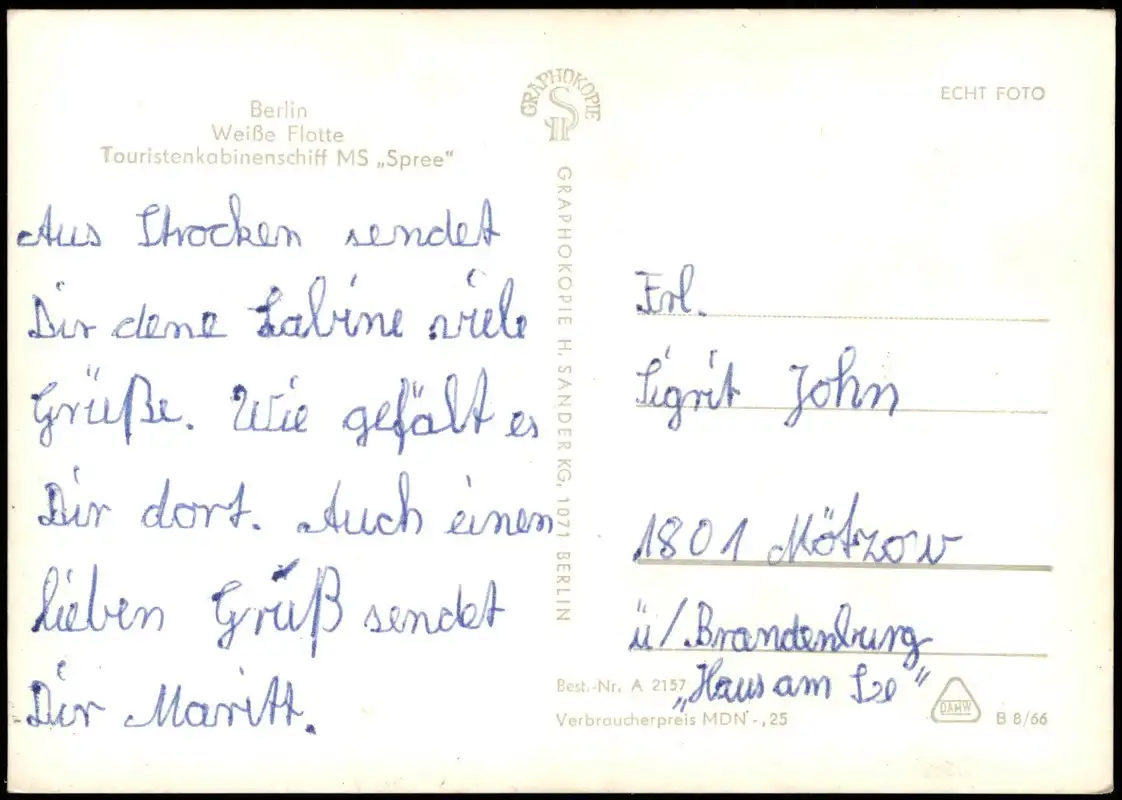 Berlin
Weiße Flotte
Touristenkabinenschiff MS „Spree"
Aus Strocken sendet
Dir deine Sabine viele
Grüße. Wie gefält es
Dir dort. Auch einen
lieben Gruß sendet
Dir Maritt.
GRAPHOKOPIE
GRAPHOKOPIE H. SANDER KG, 1071 BERLIN
ECHT FOTO
Frl.
Sigrit John
1801 Mötzow
ü/Brandenburg
„Haus am See"
Best.-Nr. A 2157
Verbraucherpreis MDN -,25
DAMW
B 8/66